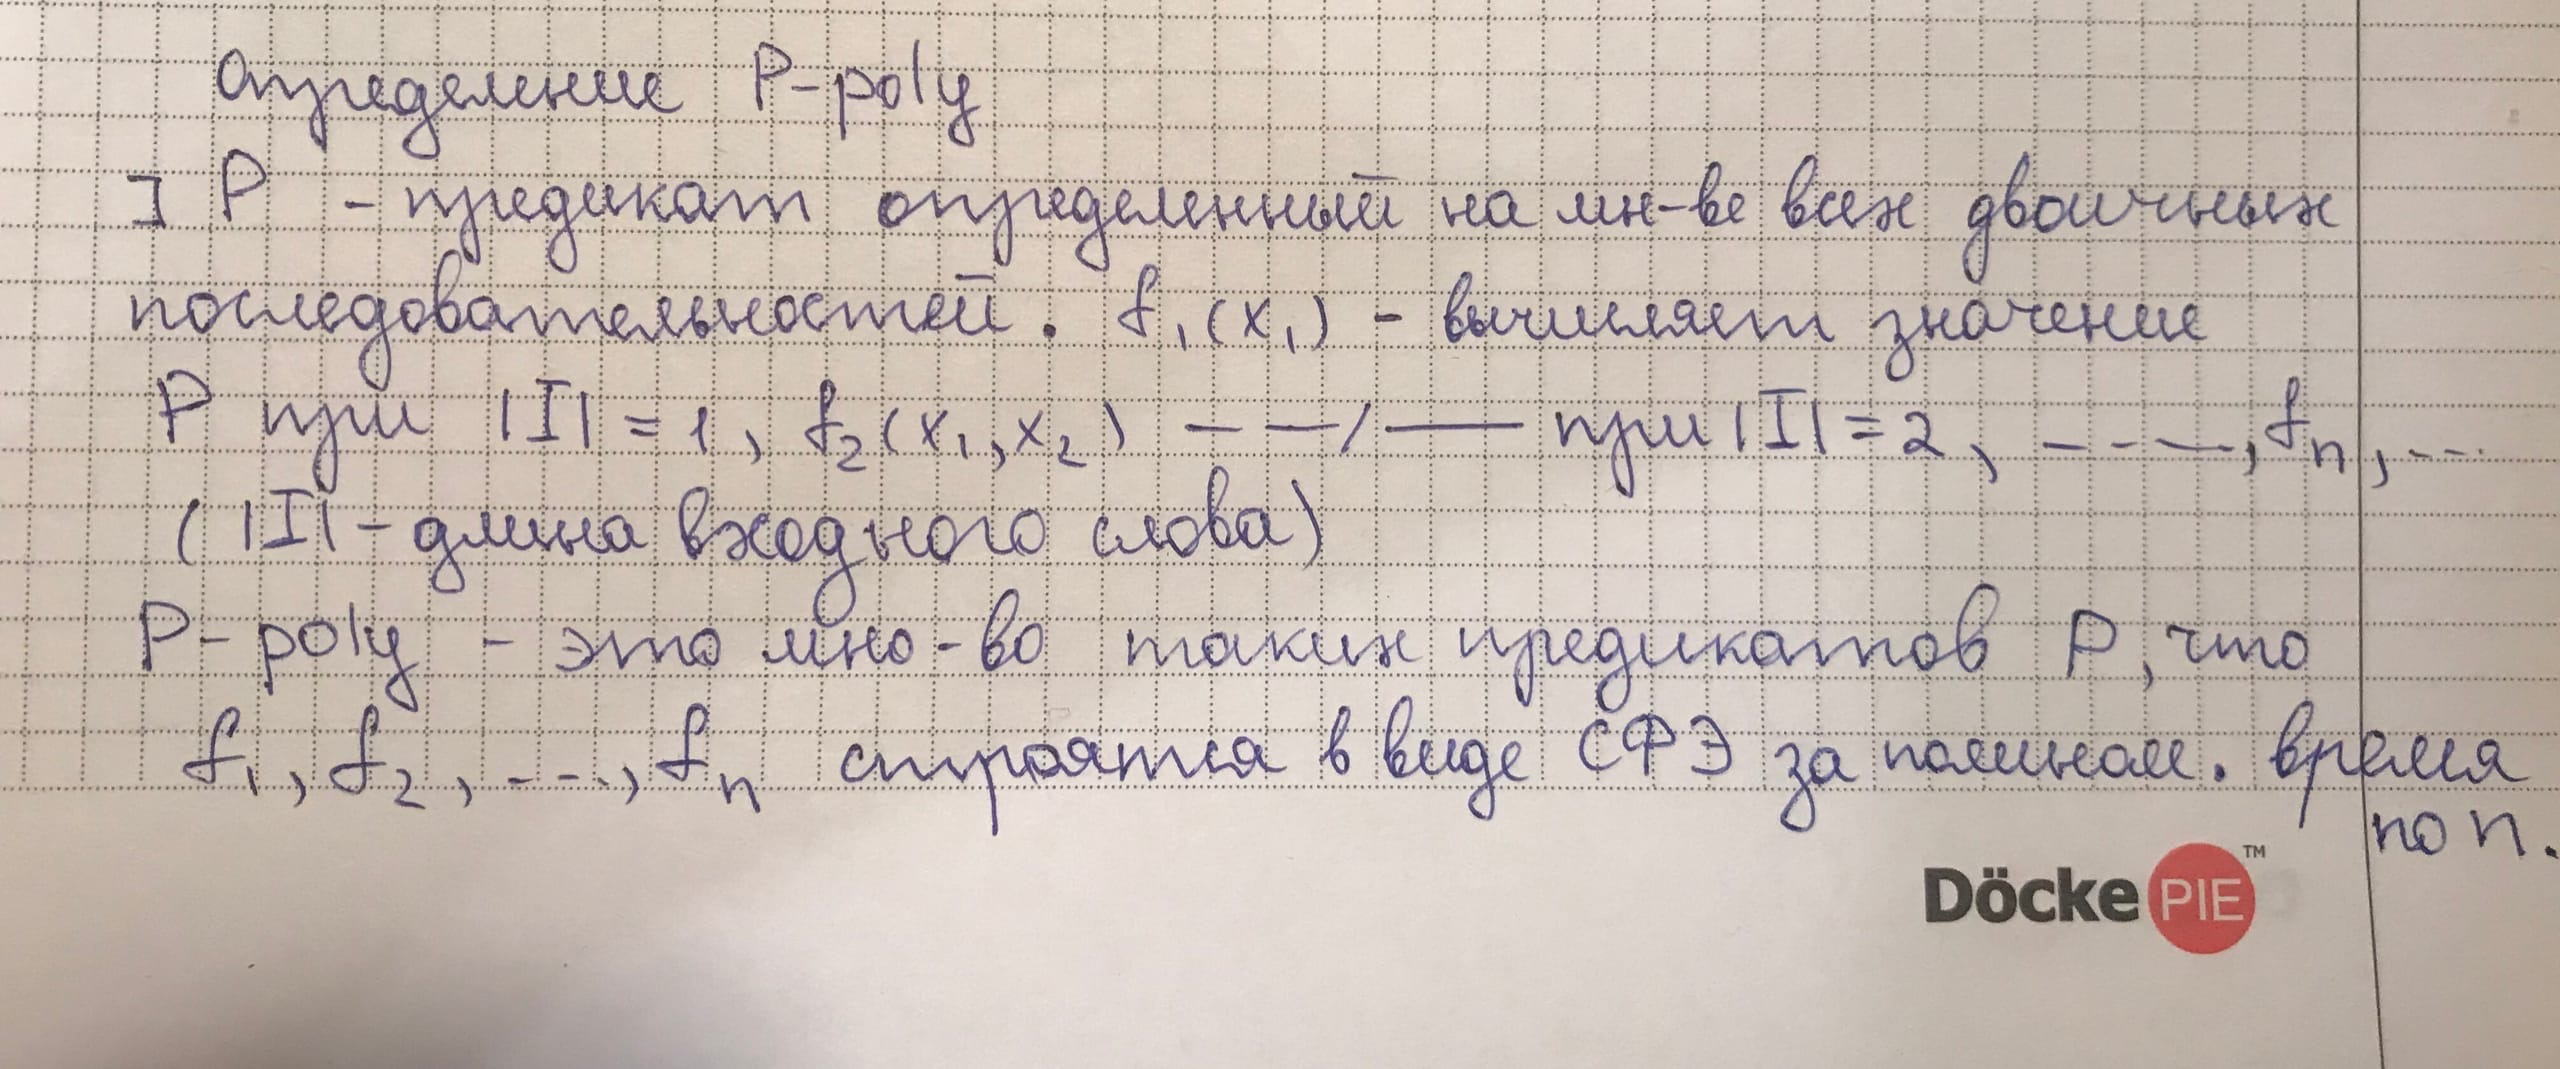 Определение P-poly
] P - предикат определенный на мн-ве всех двоичных
последовательностей. f₁(x₁) - вычисляет значение
P при |I| = 1, f₂(x₁,x₂) — —/— при |I| = 2, - - - —, fₙ, ...
( |I| - длина входного слова)
P-poly - это мно-во таких предикатов P, что
f₁, f₂, ---, fₙ строятся в виде СФЭ за полином. время
по n.
Döcke PIE™